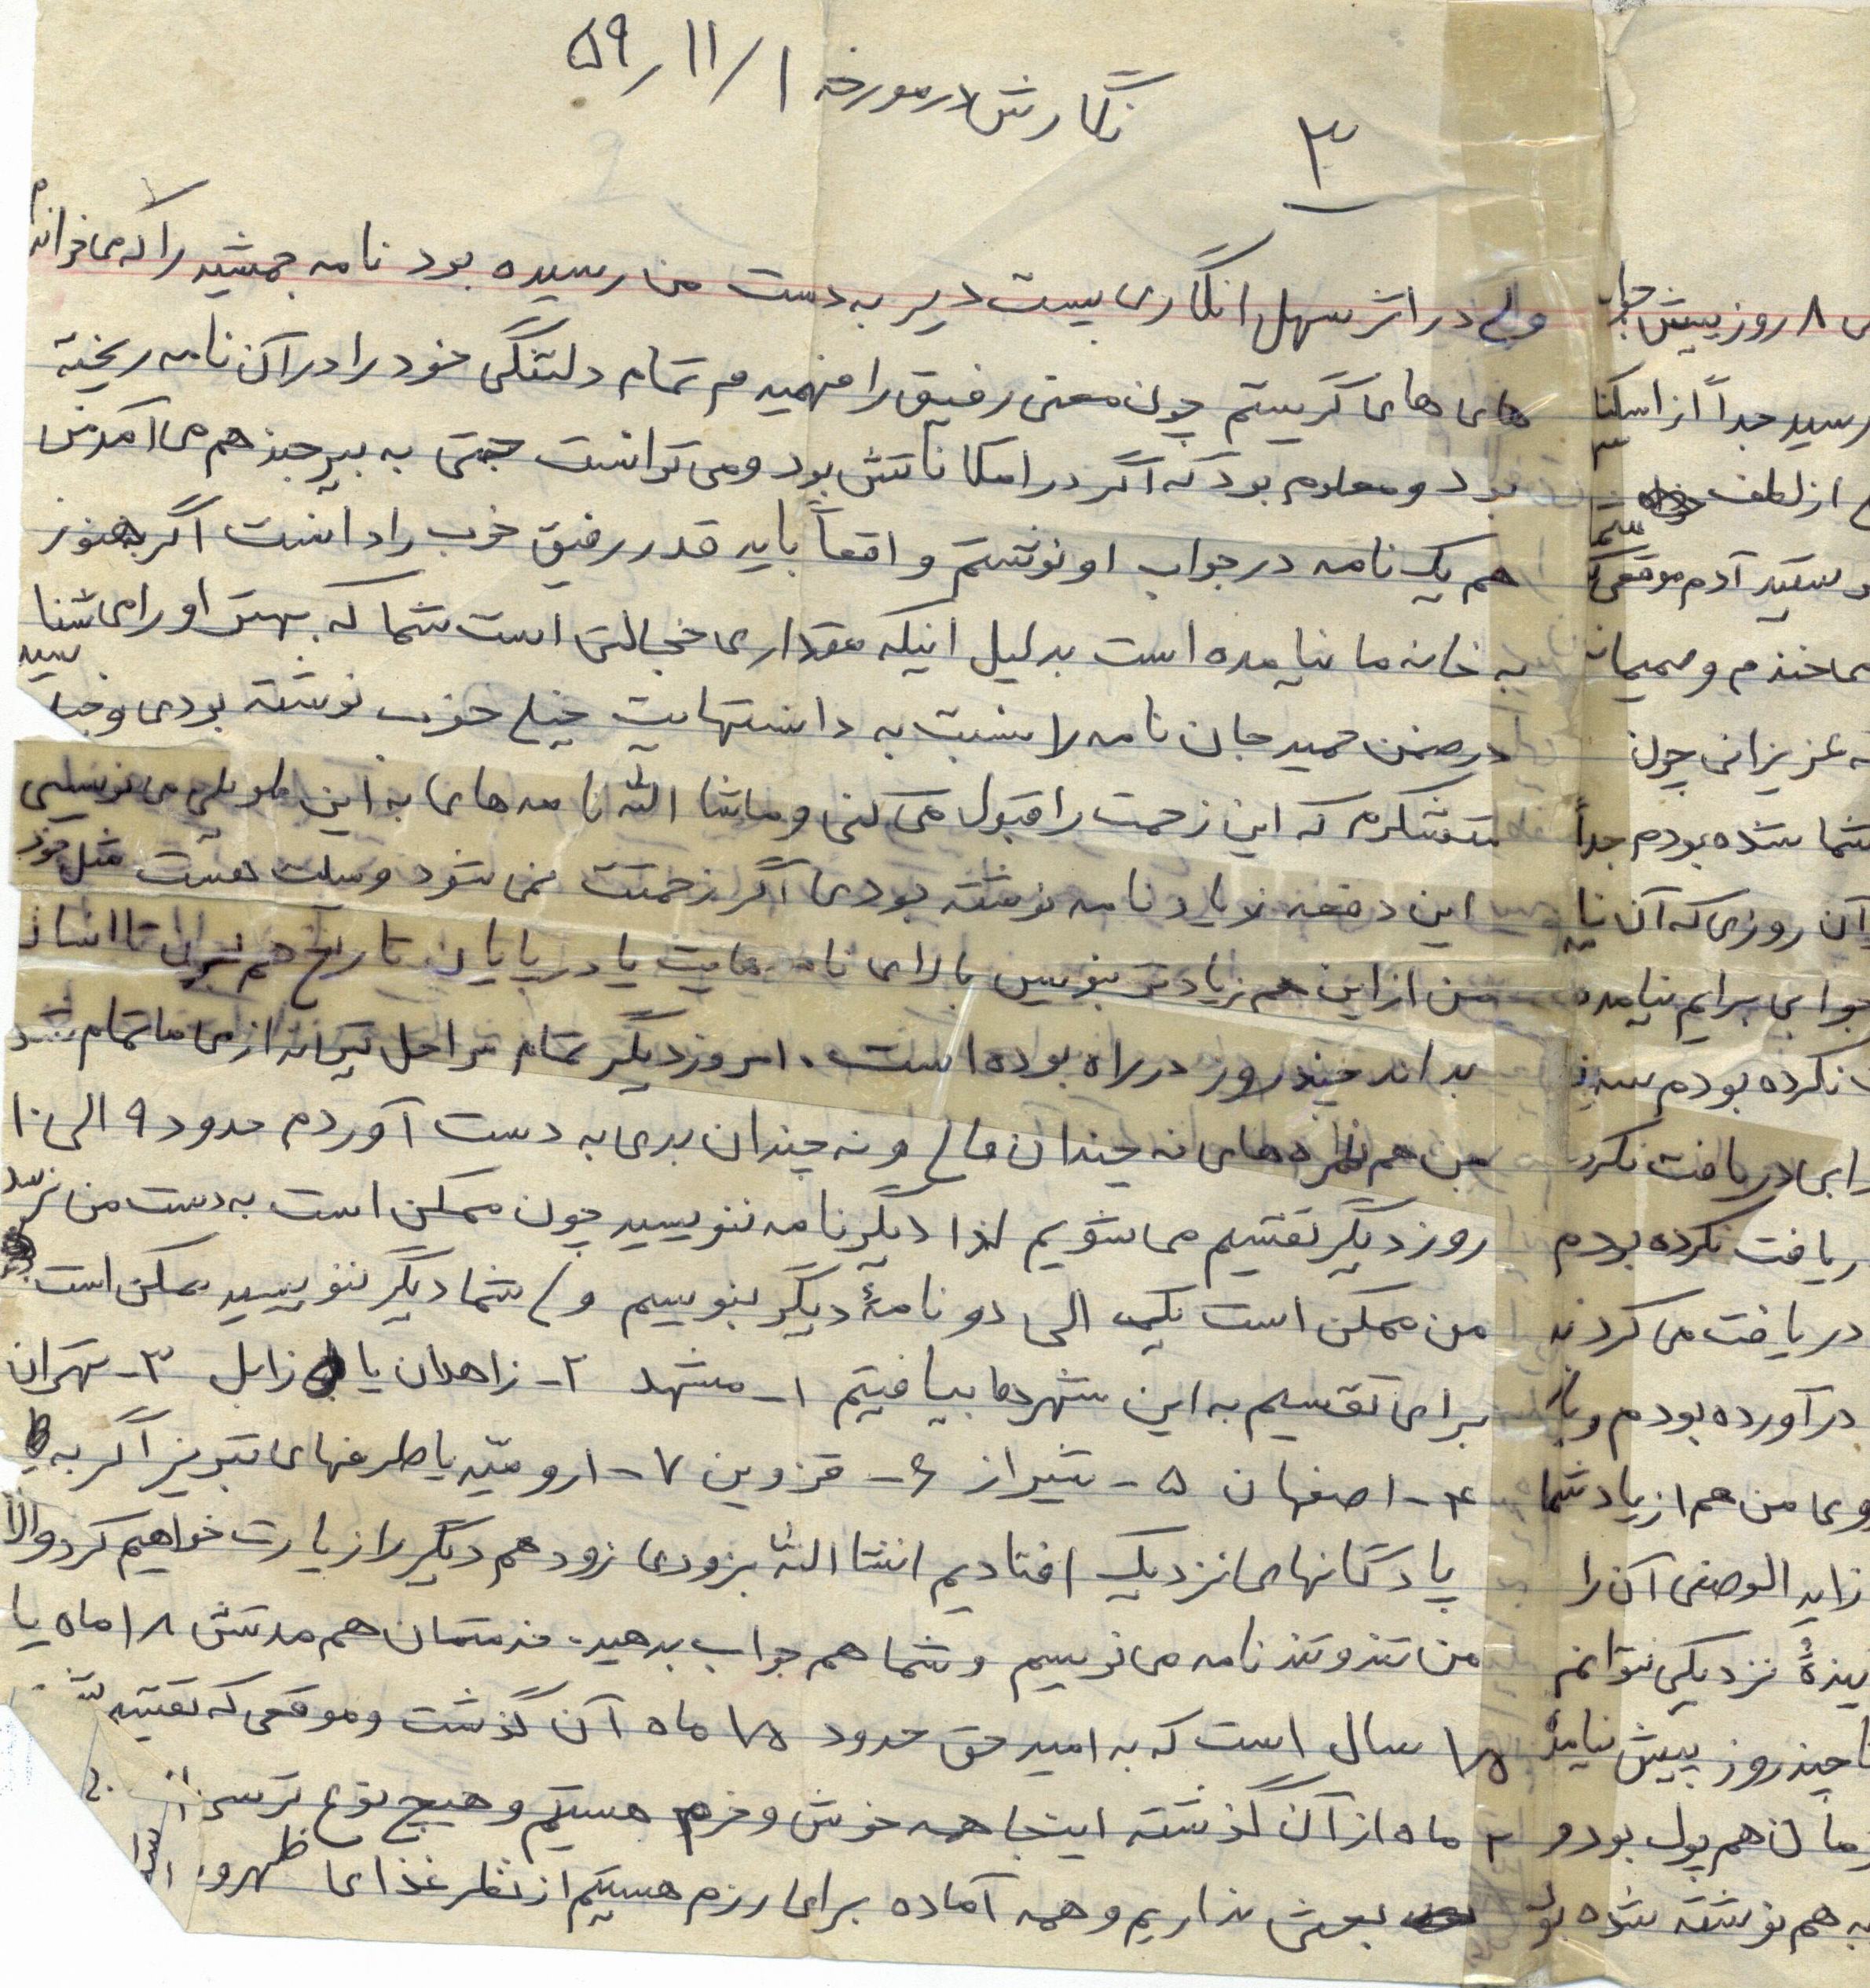 نگارش در مورخه ۵۹/۱۱/۱
۳
ولی در اثر سهل انگاری پست دیر به دست من رسیده بود نامه جمشید را که می خواندم
های های گریستم چون معنی رفیق را فهمیدم تمام دلتنگی خود را در آن نامه ریخته
بود و معلوم بود که اگر در امکاناتش بود و می توانست حتی به بیرجند هم می آمد من
هم یک نامه در جواب او نوشتم واقعاً باید قدر رفیق خوب را دانست اگر هنوز
به خانه ما نیامده است بدلیل اینکه مقداری خجالتی است شما که بهتر او را می شنا
سید
در ضمن حمید جان نامه را نسبت به داشتهایت خیلی خوب نوشته بودی و خیلی
متشکرم که این زحمت را قبول می کنی و ماشا الله نامه های به این طویلی می نویسی
این دفعه زیاد نامه نوشته بودی اگر زحمتت نمی شود و سیلت هست مثل خود
من از این هم زیادتر بنویس بالای نامه هایت یا در پایان تاریخ هم بزن تا انسان
بداند چند روز در راه بوده است . امروز دیگر تمام مراحل تیراندازی ما تمام شد
من هم نمره های نه چندان عالی و نه چندان بدی به دست آوردم حدود ۹ الی ۱۰
روز دیگر تقسیم می شویم لذا دیگر نامه ننویسید چون ممکن است به دست من نرسد
من ممکن است یک الی دو نامهٔ دیگر بنویسم ولی شما دیگر ننویسید ممکن است
برای تقسیم به این شهرها بیافتیم ۱- مشهد ۲- زاهدان یا زابل ۳- تهران
۴- اصفهان ۵- شیراز ۶- قزوین ۷- ارومیّه یا طرفهای تبریز اگر به
پادگانهای نزدیک افتادیم انشا الله بزودی زود هم دیگر را زیارت خواهیم کرد والا
من تند و تند نامه می نویسم و شما هم جواب بدهید. خدمتمان هم مدتش ۱۸ ماه یا
۱/۵ سال است که به امید حق حدود ۱/۵ ماه آن گذشت و موقعی که تقسیم
۲ ماه از آن گذشته اینجا همه خوش و خرم هستیم و هیچ نوع ترسی از
بعثی نداریم و همه آماده برای رزم هستیم از نظر غذای ظهر و
۸ روز پیش جواب
رسید جداً از اسکنا
از لطف شما
سعید آدم موقعی که
می خندم و صمیمانه
عزیزانی چون
شما شده بودم جداً
آن روزی که آن نا
جوابی برایم نیامده
نکرده بودم
دریافت نکرد
دریافت نکرده بودم
دریافت می کردند
در آورده بودم و با
من هم از یاد شما
زاید الوصفی آن را
نزدیکی نتوانم
تا چند روز پیش نیاید
هم پول بود و
هم نوشته شده بود